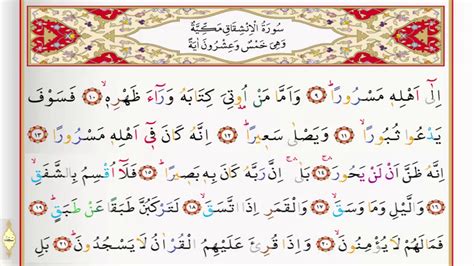 سُورَةُ الْاِنْشِقَاقِ مَكِّيَّةٌ
وَهِيَ خَمْسٌ وَعِشْرُونَ اٰيَةً
اِلٰٓى اَهْلِه۪ مَسْرُورًاۜ ﴿٩﴾ وَاَمَّا مَنْ اُو۫تِيَ كِتَابَهُ وَرَٓاءَ ظَهْرِه۪ۙ ﴿١٠﴾ فَسَوْفَ
يَدْعُوا ثُبُورًاۙ ﴿١١﴾ وَيَصْلٰى سَع۪يرًاۜ ﴿١٢﴾ اِنَّهُ كَانَ ف۪ٓي اَهْلِه۪ مَسْرُورًاۜ ﴿١٣﴾
اِنَّهُ ظَنَّ اَنْ لَنْ يَحُورَۚۛ ﴿١٤﴾ بَلٰىۚۛ اِنَّ رَبَّهُ كَانَ بِه۪ بَص۪يرًاۜ ﴿١٥﴾ فَلَٓا اُقْسِمُ بِالشَّفَقِۙ
﴿١٦﴾ وَالَّيْلِ وَمَا وَسَقَۙ ﴿١٧﴾ وَالْقَمَرِ اِذَا اتَّسَقَۙ ﴿١٨﴾ لَتَرْكَبُنَّ طَبَقًا عَنْ طَبَقٍۜ ﴿١٩﴾
فَمَا لَهُمْ لَا يُؤْمِنُونَۙ ﴿٢٠﴾ وَاِذَا قُرِئَ عَلَيْهِمُ الْقُرْاٰنُ لَا يَسْجُدُونَۜ ﴿٢١﴾ بَلِ